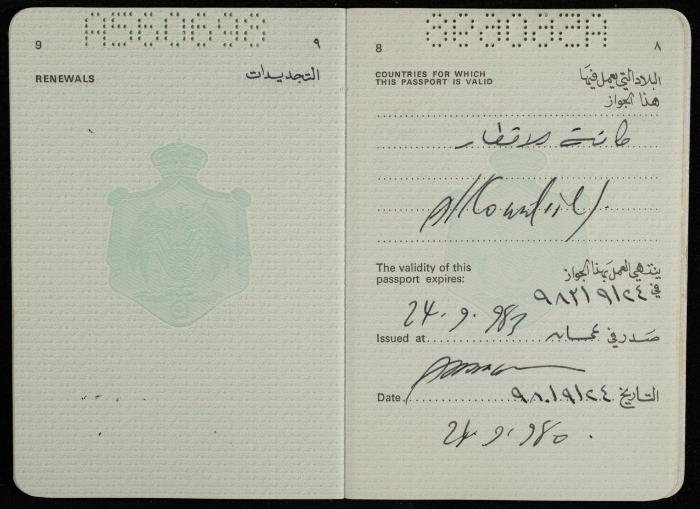 ٩
9
التجديدات
RENEWALS
٨
8
البلاد التي يعمل فيها
هذا الجواز
COUNTRIES FOR WHICH
THIS PASSPORT IS VALID
كافة الاقطار
All Countries.
ينتهي العمل بهذا الجواز
في ٩٨٣/٩/٢٤
The validity of this
passport expires:
24.9.983
صدر في عمان
Issued at
Amman
التاريخ ٩٨٠/٩/٢٤
Date
24.9.980.